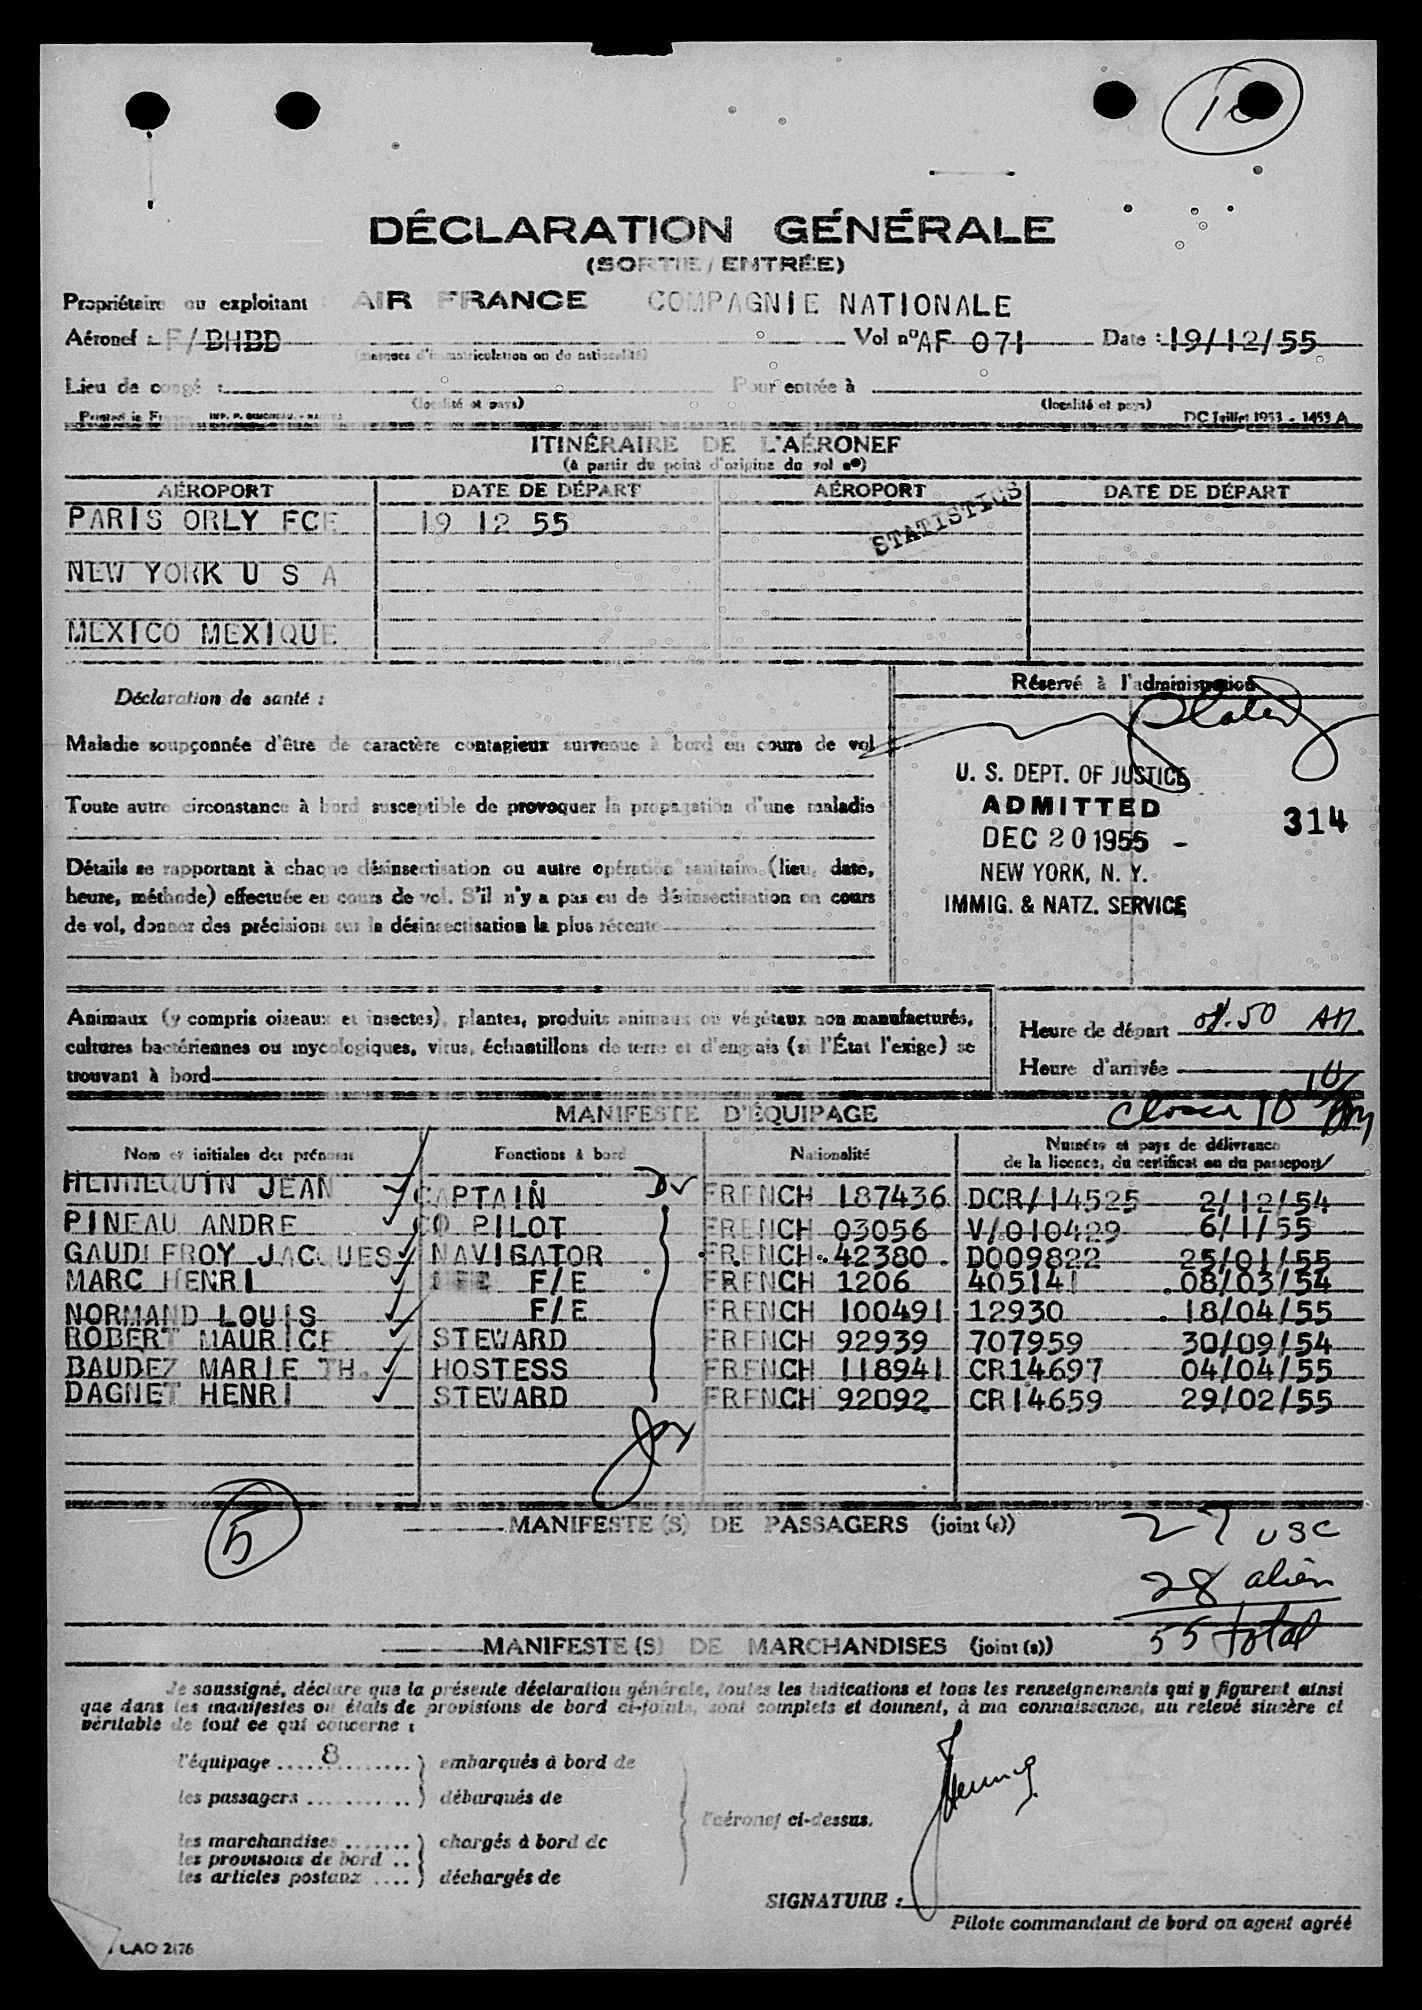 10
DÉCLARATION GÉNÉRALE
(SORTIE / ENTRÉE)
Propriétaire ou exploitant : AIR FRANCE COMPAGNIE NATIONALE
Aéronef : F/BHBD Vol nº AF 071 Date : 19/12/55
(marques d'immatriculation ou de nationalité)
Lieu de congé : Pour entrée à
(localité et pays) (localité et pays)
Printed in France DC Juillet 1953 - 1453 A
ITINÉRAIRE DE L'AÉRONEF
(à partir du point d'origine du vol nº)
AÉROPORT DATE DE DÉPART AÉROPORT DATE DE DÉPART
PARIS ORLY FCE 19 12 55
STATISTICS
NEW YORK U S A
MEXICO MEXIQUE
Déclaration de santé :
Réservé à l'administration
Maladie soupçonnée d'être de caractère contagieux survenue à bord en cours de vol
Toute autre circonstance à bord susceptible de provoquer la propagation d'une maladie
Détails se rapportant à chaque désinsectisation ou autre opération sanitaire (lieu, date,
heure, méthode) effectuée en cours de vol. S'il n'y a pas eu de désinsectisation en cours
de vol, donner des précisions sur la désinsectisation la plus récente
U. S. DEPT. OF JUSTICE
ADMITTED
DEC 20 1955 -
NEW YORK, N. Y.
IMMIG. & NATZ. SERVICE
314
Animaux (y compris oiseaux et insectes), plantes, produits animaux ou végétaux non manufacturés,
cultures bactériennes ou mycologiques, virus, échantillons de terre et d'engrais (si l'État l'exige) se
trouvant à bord
Heure de départ 50 AM
Heure d'arrivée
MANIFESTE D'ÉQUIPAGE
Nom et initiales des prénoms Fonctions à bord Nationalité Numéro et pays de délivrance
de la licence, du certificat ou du passeport
HENNEQUIN JEAN CAPTAIN FRENCH 187436 DCR/14525 2/12/54
PINEAU ANDRE CO PILOT FRENCH 03056 V/010429 6/1/55
GAUDLEFROY JACQUES NAVIGATOR FRENCH 42380 D009822 25/01/55
MARC HENRI F/E FRENCH 1206 405141 08/03/54
NORMAND LOUIS F/E FRENCH 100491 12930 18/04/55
ROBERT MAURICE STEWARD FRENCH 92939 707959 30/09/54
BAUDEZ MARIE TH. HOSTESS FRENCH 118941 CR14697 04/04/55
DAGNET HENRI STEWARD FRENCH 92092 CR14659 29/02/55
5
MANIFESTE (S) DE PASSAGERS (joint (s))
27 USC
28 alien
55 total
MANIFESTE (S) DE MARCHANDISES (joint (s))
Je soussigné, déclare que la présente déclaration générale, toutes les indications et tous les renseignements qui y figurent ainsi
que dans les manifestes ou états de provisions de bord ci-joints, sont complets et donnent, à ma connaissance, un relevé sincère et
véritable de tout ce qui concerne :
l'équipage ....8........ ) embarqués à bord de
les passagers ........... ) débarqués de
l'aéronef ci-dessus.
les marchandises ....... ) chargés à bord de
les provisions de bord ..
les articles postaux .... ) déchargés de
SIGNATURE :
Pilote commandant de bord ou agent agréé
LAO 2176